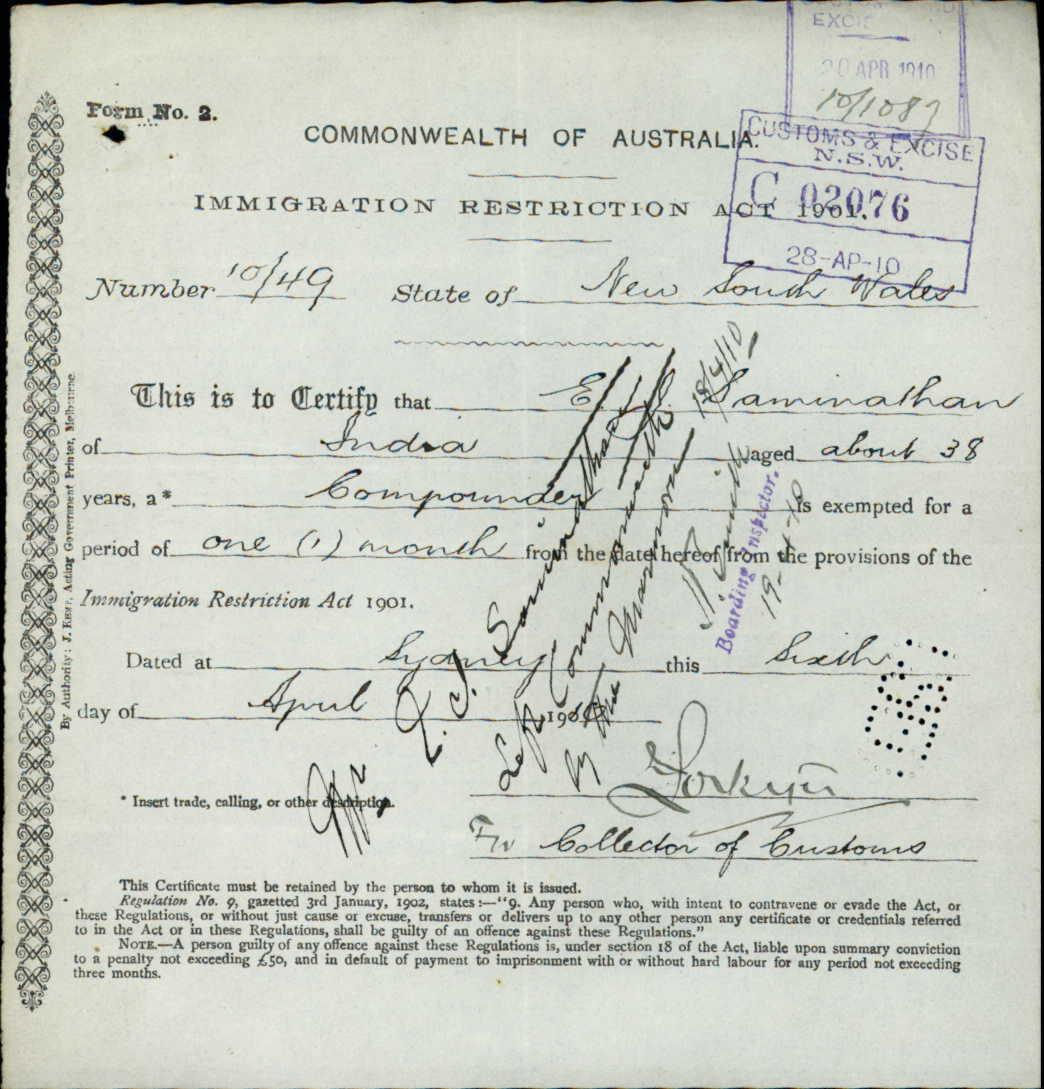 EXCISE
20 APR 1910
10/1087
Form No. 2.
COMMONWEALTH OF AUSTRALIA.
CUSTOMS & EXCISE
N.S.W.
C 02076
28-AP-10
IMMIGRATION RESTRICTION ACT 1901.
Number 10/49 State of New South Wales
This is to Certify that E. J. S. Saminathan
of India aged about 38
years, a* Compounder is exempted for a
period of one (1) month from the date hereof from the provisions of the
Immigration Restriction Act 1901.
Dated at Sydney this Sixth
day of April 1910
* Insert trade, calling, or other description.
For Collector of Customs
Saminathan
Left Commonwealth
by the
18/4/10
Boarding Inspector.
This Certificate must be retained by the person to whom it is issued.
Regulation No. 9, gazetted 3rd January, 1902, states:—"9. Any person who, with intent to contravene or evade the Act, or
these Regulations, or without just cause or excuse, transfers or delivers up to any other person any certificate or credentials referred
to in the Act or in these Regulations, shall be guilty of an offence against these Regulations."
NOTE.—A person guilty of any offence against these Regulations is, under section 18 of the Act, liable upon summary conviction
to a penalty not exceeding £50, and in default of payment to imprisonment with or without hard labour for any period not exceeding
three months.
By Authority: J. KEMP, Acting Government Printer, Melbourne.